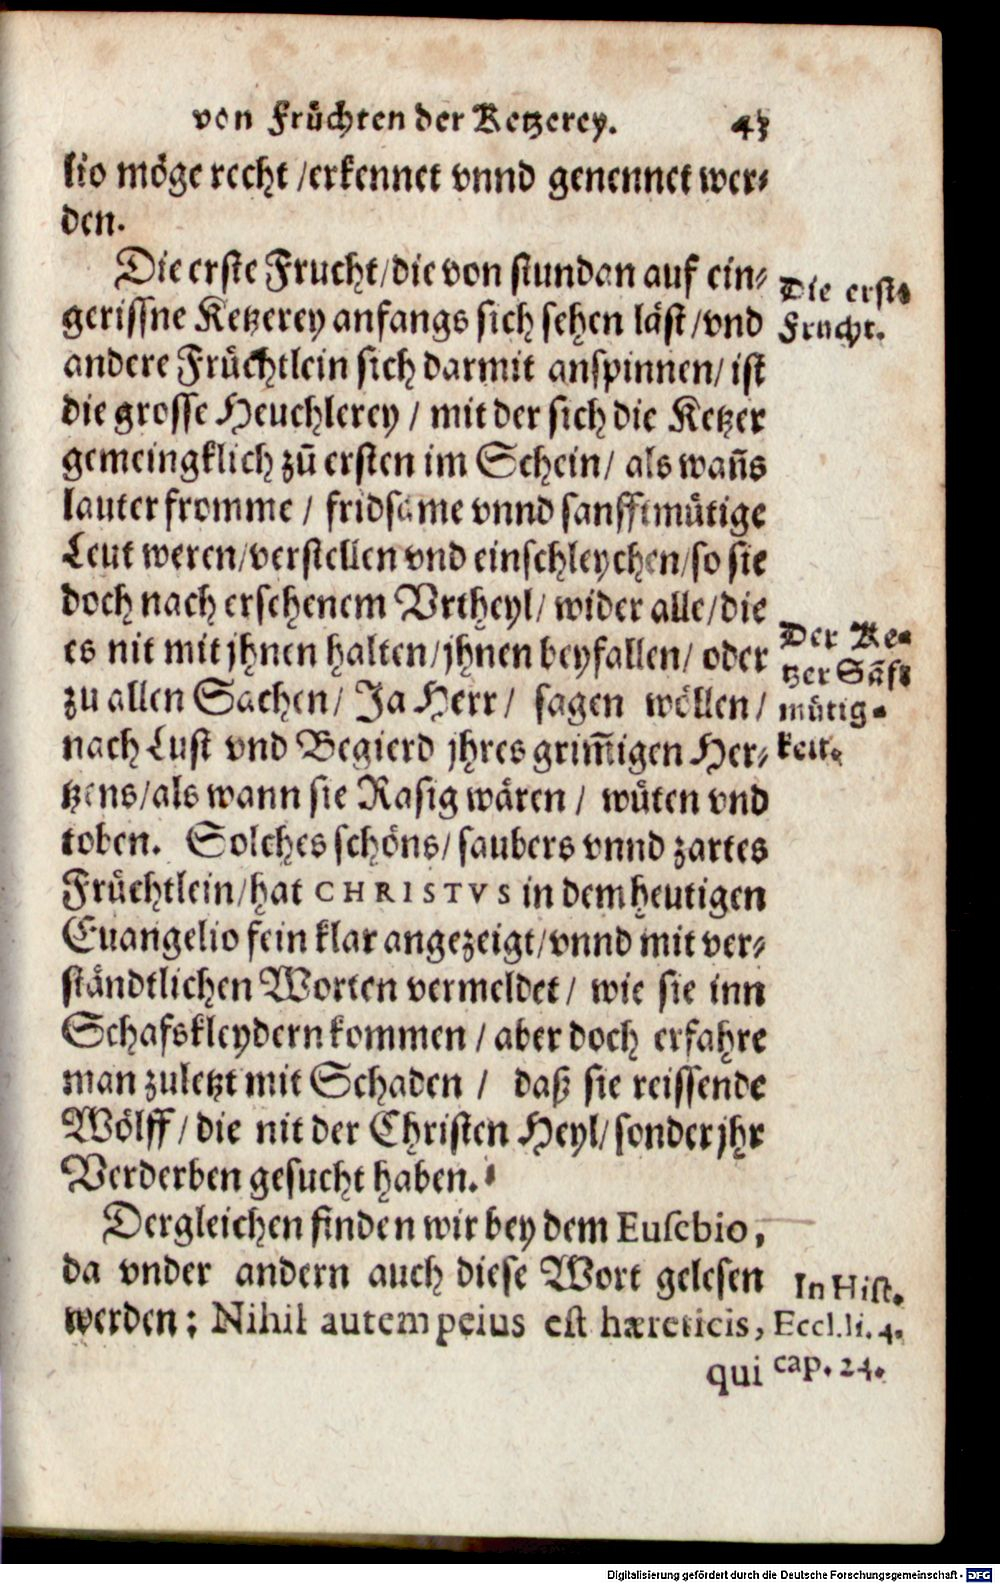 von Früchten der Ketzerey. 43
lio möge recht / erkennet vnnd genennet wer-
den.
Die erste Frucht / die von stundan auf ein-
gerissne Ketzerey anfangs sich sehen läst / vnd
andere Früchtlein sich darmit anspinnen / ist
die grosse Heuchlerey / mit der sich die Ketzer
gemeingklich zū ersten im Schein / als wañs
lauter fromme / fridsame vnnd sanfftmütige
Leut weren / verstellen vnd einschleychen / so sie
doch nach ersehenem Vrtheyl / wider alle / die
es nit mit jhnen halten / jhnen beyfallen / oder
zu allen Sachen / Ja Herr / sagen wöllen /
nach Lust vnd Begierd jhres grim̃igen Her-
tzens / als wann sie Rasig wären / wüten vnd
toben. Solches schöns / saubers vnnd zartes
Früchtlein / hat CHRISTVS in dem heutigen
Euangelio fein klar angezeigt / vnnd mit ver-
ständtlichen Worten vermeldet / wie sie inn
Schafskleydern kommen / aber doch erfahre
man zuletzt mit Schaden / daß sie reissende
Wölff / die nit der Christen Heyl / sonder jhr
Verderben gesucht haben.
Dergleichen finden wir bey dem Eusebio,
da vnder andern auch diese Wort gelesen
werden: Nihil autem peius est hæreticis,
qui
Die erste
Frucht.
Der Ke-
tzer Sãft
mütig-
keit.
In Hist.
Eccl. li. 4.
cap. 24.
Digitalisierung gefördert durch die Deutsche Forschungsgemeinschaft - DFG